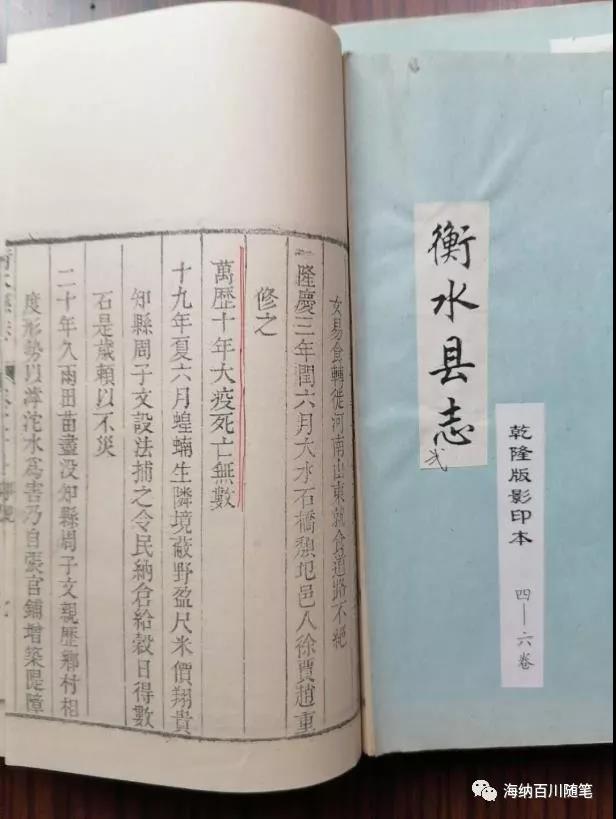 女易食轉徙河南山東就食道路不絕
隆慶三年閏六月大水石橋頹圯邑人徐賈趙重
修之
萬歷十年大疫死亡無數
十九年夏六月蝗蝻生隣境蔽野盈尺米價翔貴
知縣周子文設法捕之令民納倉給穀日得數
石是歲賴以不災
二十年久雨田苗盡没知縣周子文親歷鄉村相
度形勢以滹沱水爲害乃自張官鋪增築隄障
衡水县志
弍
乾隆版影印本 四—六卷
海纳百川随笔